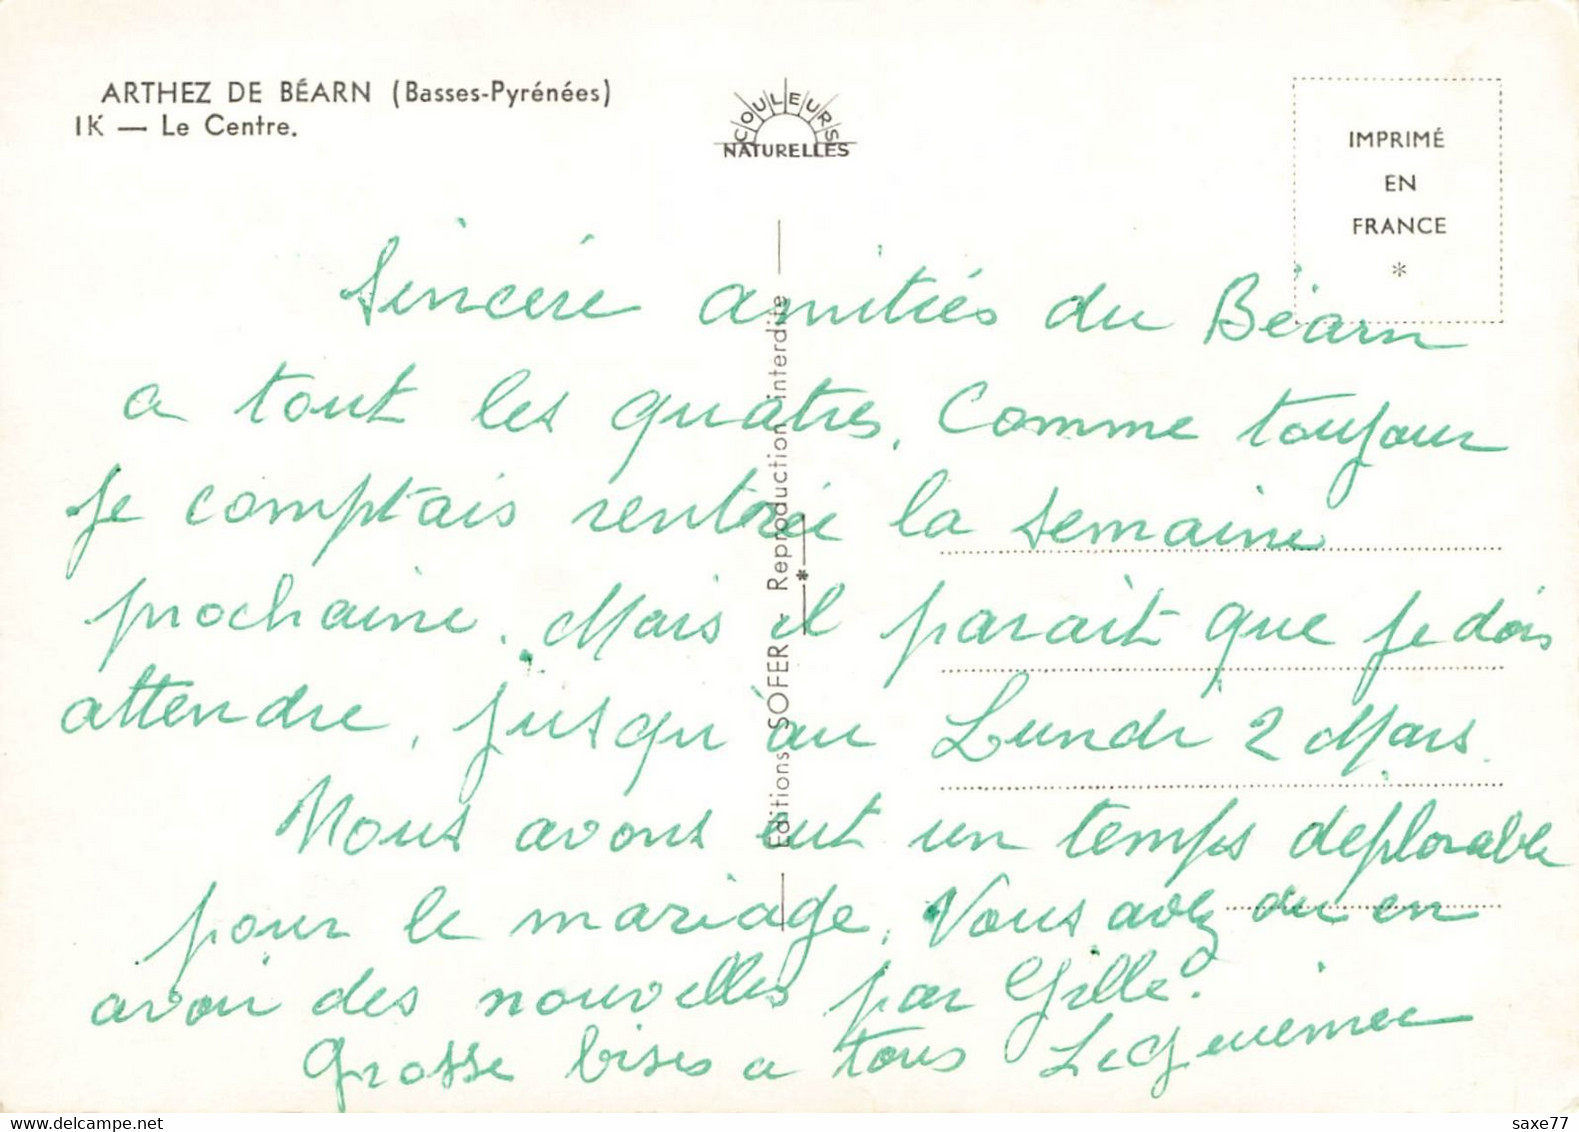 ARTHEZ DE BÉARN (Basses-Pyrénées)
IK — Le Centre.
COULEURS
NATURELLES
IMPRIMÉ
EN
FRANCE
*
Editions SOFER - Reproduction interdite
Sincére amitiés du Béarn
a tout les quatres. Comme toujour
je comptais rentrée la semaine
prochaine. Mais il parait que je dois
attendre, jusqu'au Lundi 2 Mars.
Nous avons eut un temps deplorable
pour le mariage. Vous avez du en
avoir des nouvelles par Gille.
Grosse bises a tous
saxe77